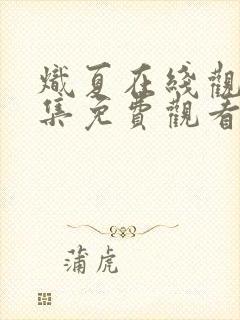 熾夏在綫觀
集免費觀看
蒲虎